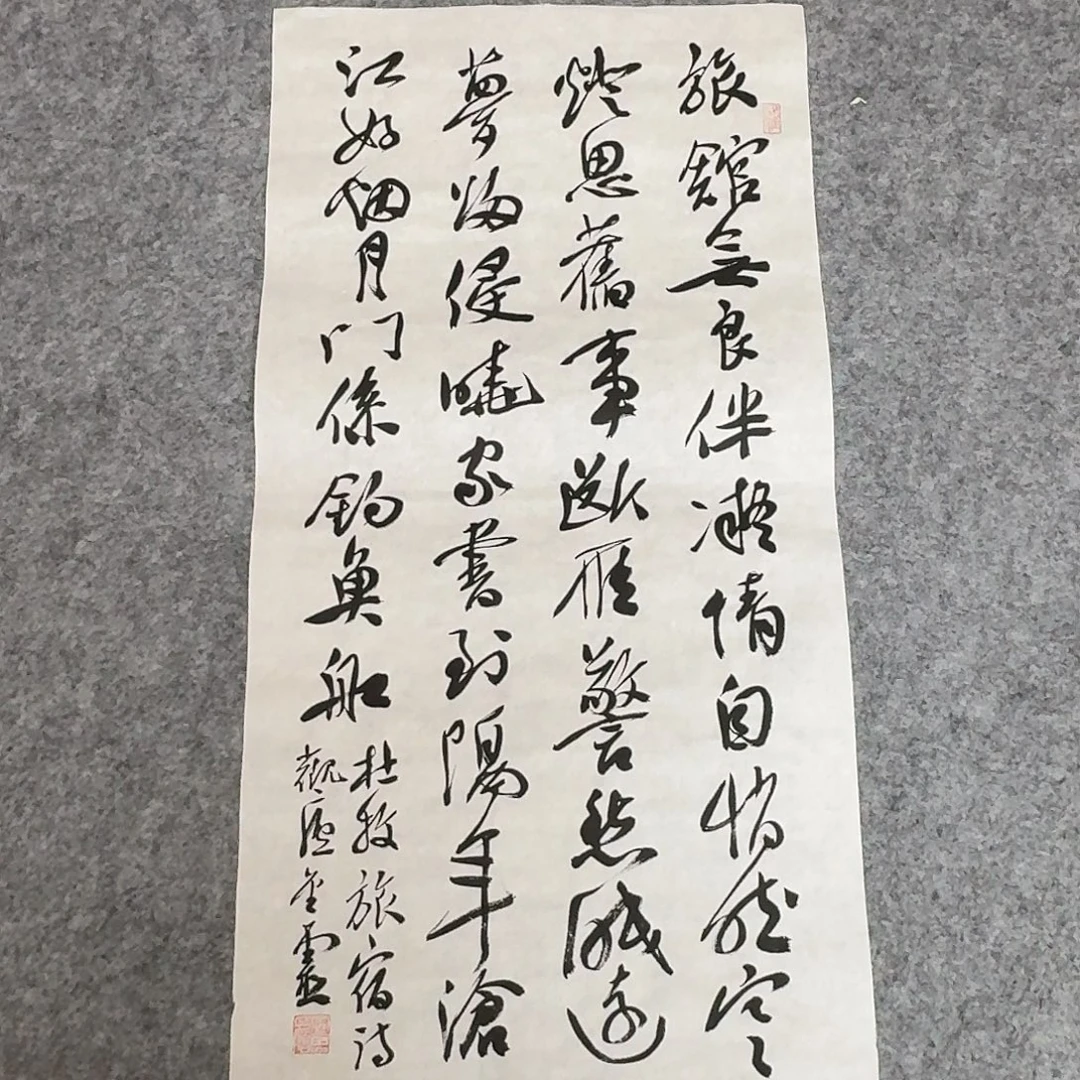 旅舘無良伴凝情自悄然寒
燈思舊事斷雁警愁眠遠
夢歸侵曉家書到隔年滄
江好烟月門係釣魚船
杜牧旅宿詩
觀